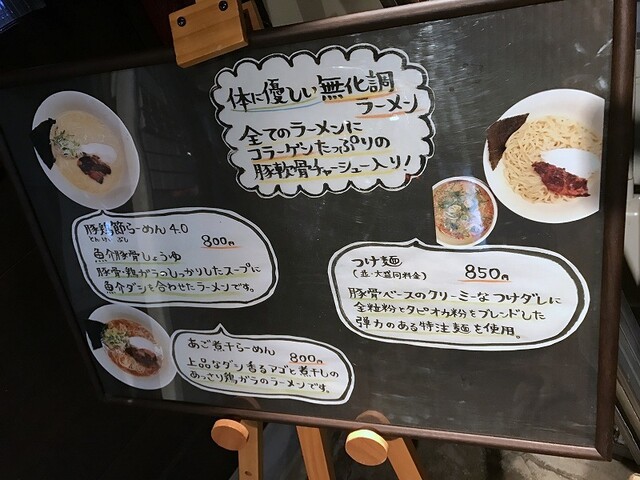 体に優しい無化調
ラーメン
全てのラーメンに
コラーゲンたっぷりの
豚軟骨チャーシュー入り!
豚鶏節らーめん 4.0
とん けい ぶし
800円
魚介豚骨しょうゆ
豚骨・鶏ガラのしっかりしたスープに
魚介ダシを合わせたラーメンです。
つけ麺
(並・大盛同料金)
850円
豚骨ベースのクリーミーなつけダレに
全粒粉とタピオカ粉をブレンドした
弾力のある特注麺を使用。
あご煮干らーめん
800円
上品なダシ香るアゴと煮干しの
あっさり鶏ガラのラーメンです。